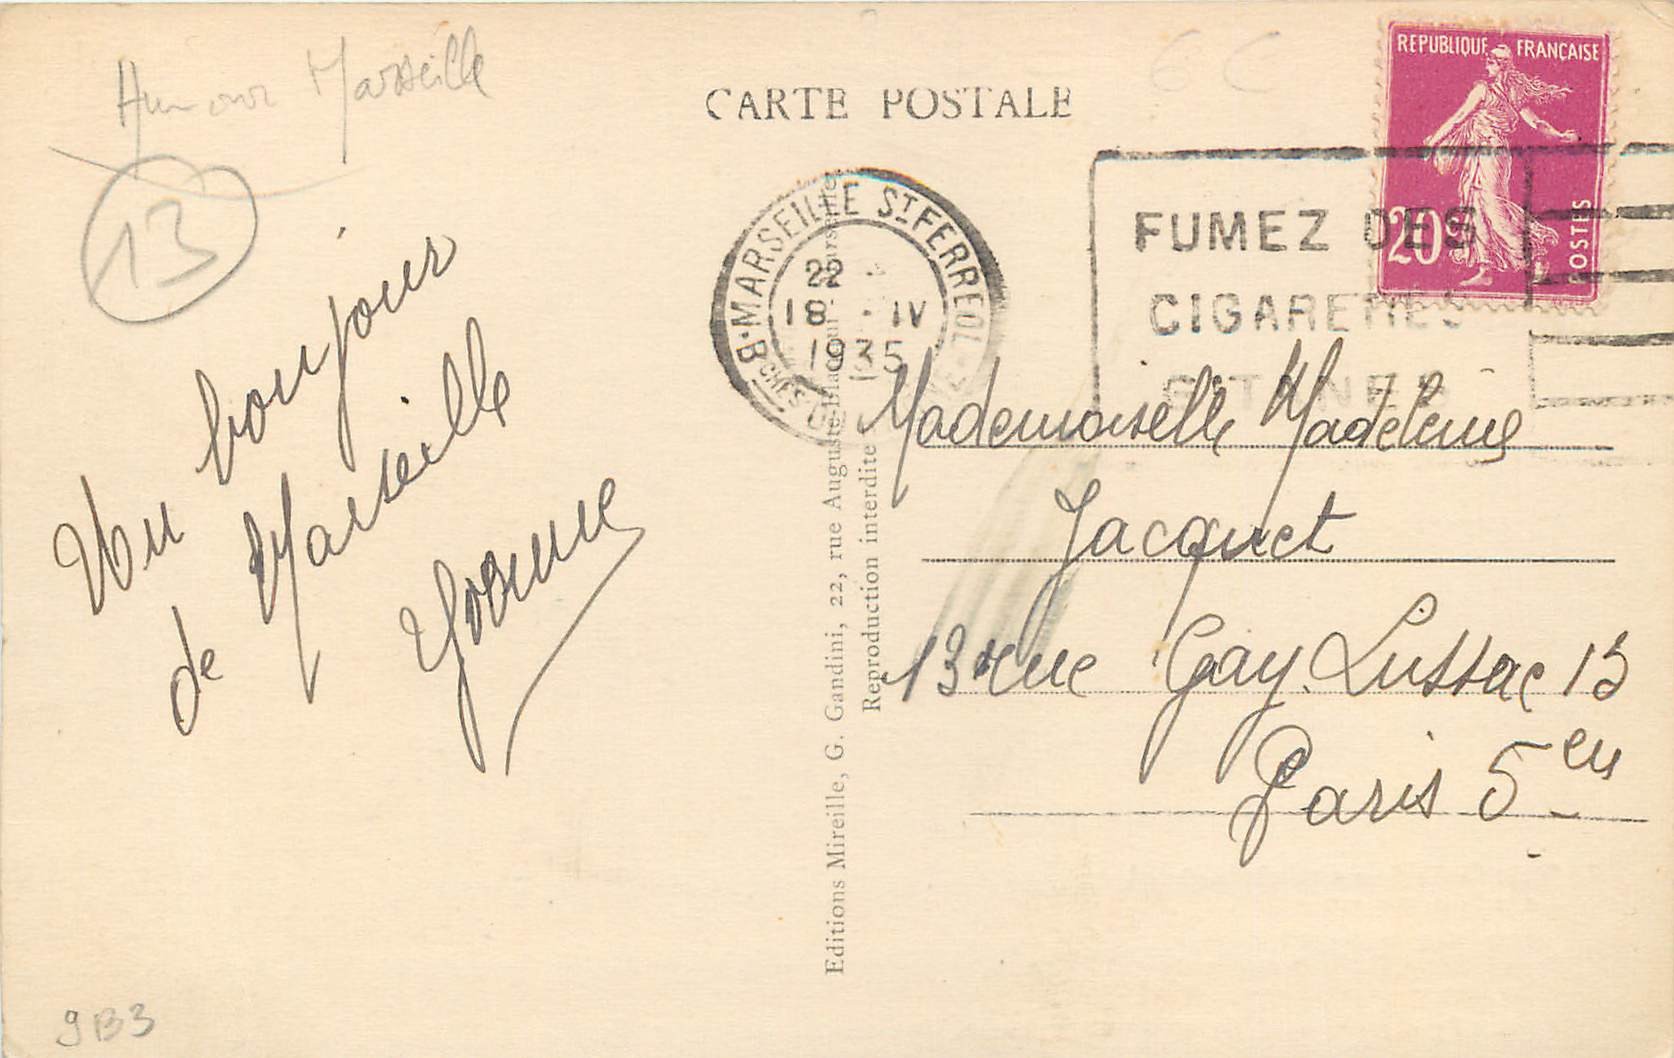 Humour Marseille
13
Un bonjour
de Marseille
Yvonne
9B3
CARTE POSTALE
6 C
REPUBLIQUE FRANÇAISE
20c
POSTES
MARSEILLE ST FERREOL
B CHES
22
18 - IV
1935
FUMEZ DES
CIGARETTES
GITANES
Editions Mireille, G. Gandini, 22, rue Auguste-Blanqui - Marseille
Reproduction interdite
Mademoiselle Madeleine
Jacquet
13 rue Gay Lussac 13
Paris 5 en